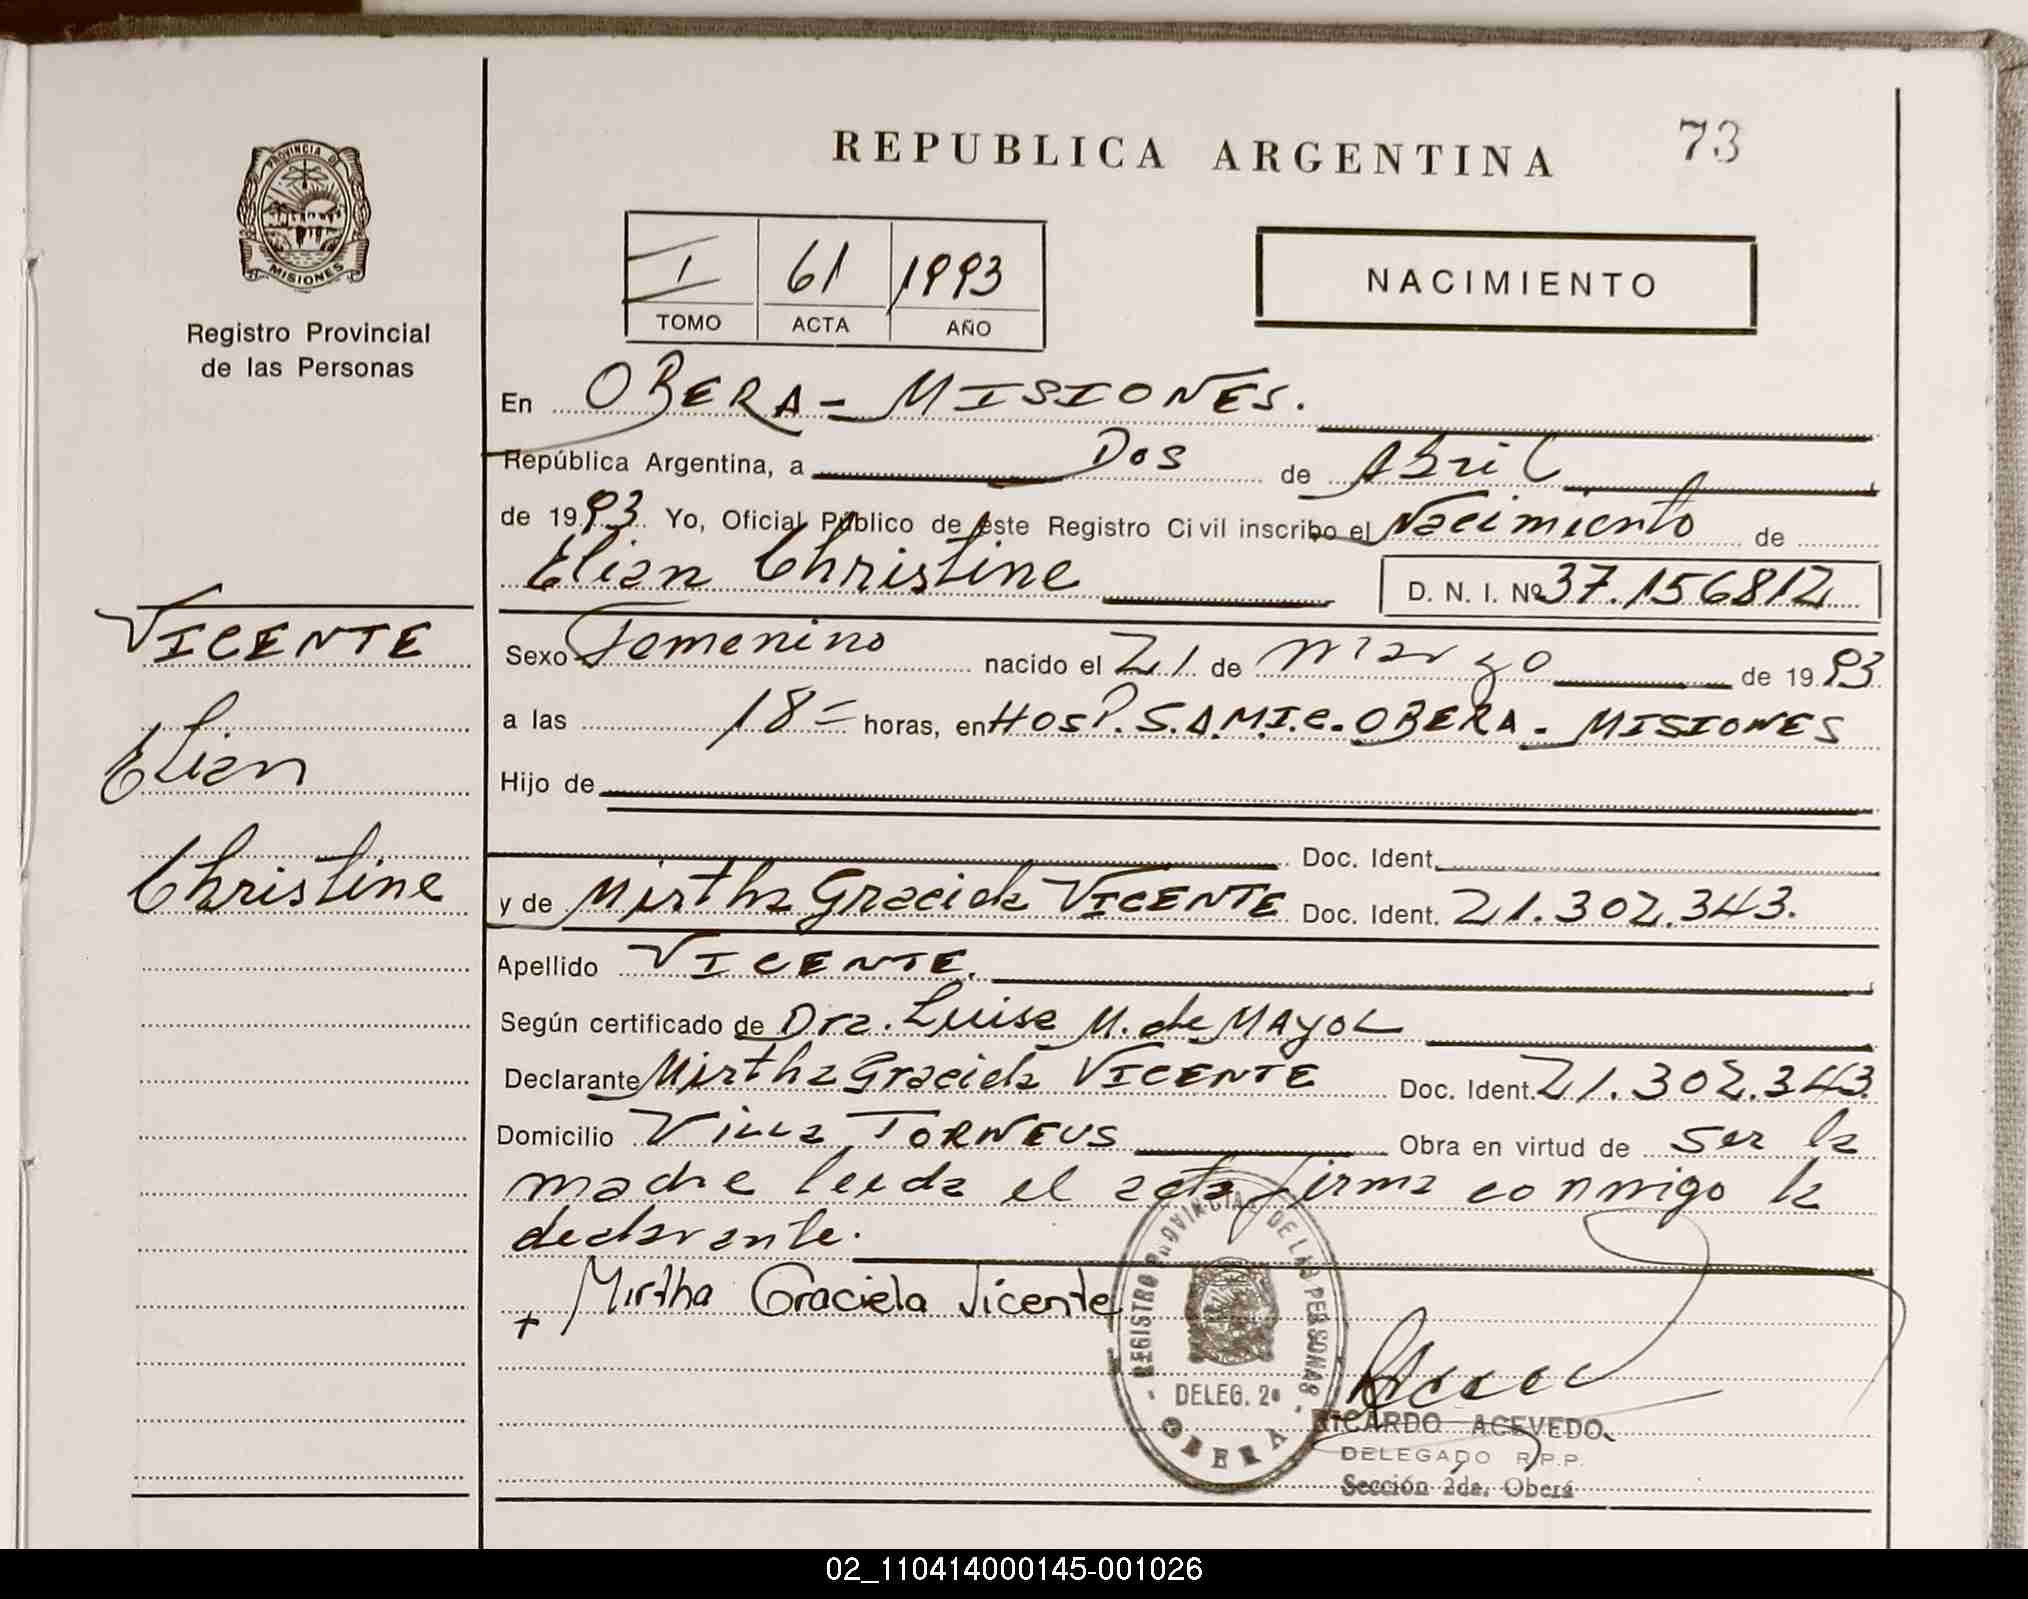 REPUBLICA ARGENTINA
73
PROVINCIA DE
MISIONES
Registro Provincial
de las Personas
I 61 1993
TOMO ACTA AÑO
NACIMIENTO
En OBERA - MISIONES.
República Argentina, a Dos de Abril
de 1993 Yo, Oficial Público de este Registro Civil inscribo el Nacimiento de
Elian Christine D. N. I. Nº 37.156812
VICENTE
Elian
Christine
Sexo Femenino nacido el 21 de Marzo de 1993
a las 18= horas, en HOSP. S.A.M.I.C. OBERA - MISIONES
Hijo de
Doc. Ident.
y de Mirtha Graciela VICENTE Doc. Ident. 21.302.343.
Apellido VICENTE.
Según certificado de Dra. Luisa M. de MAYOL
Declarante Mirtha Graciela VICENTE Doc. Ident. 21.302.343
Domicilio Villa TORNEUS Obra en virtud de ser la
madre leeda el acta firma conmigo la
declarante.
+ Mirtha Graciela Vicente
REGISTRO PROVINCIAL DE LAS PERSONAS
DELEG. 2ª
OBERA
RICARDO ACEVEDO
DELEGADO R.P.P.
Sección 2da. Oberá
02_110414000145-001026